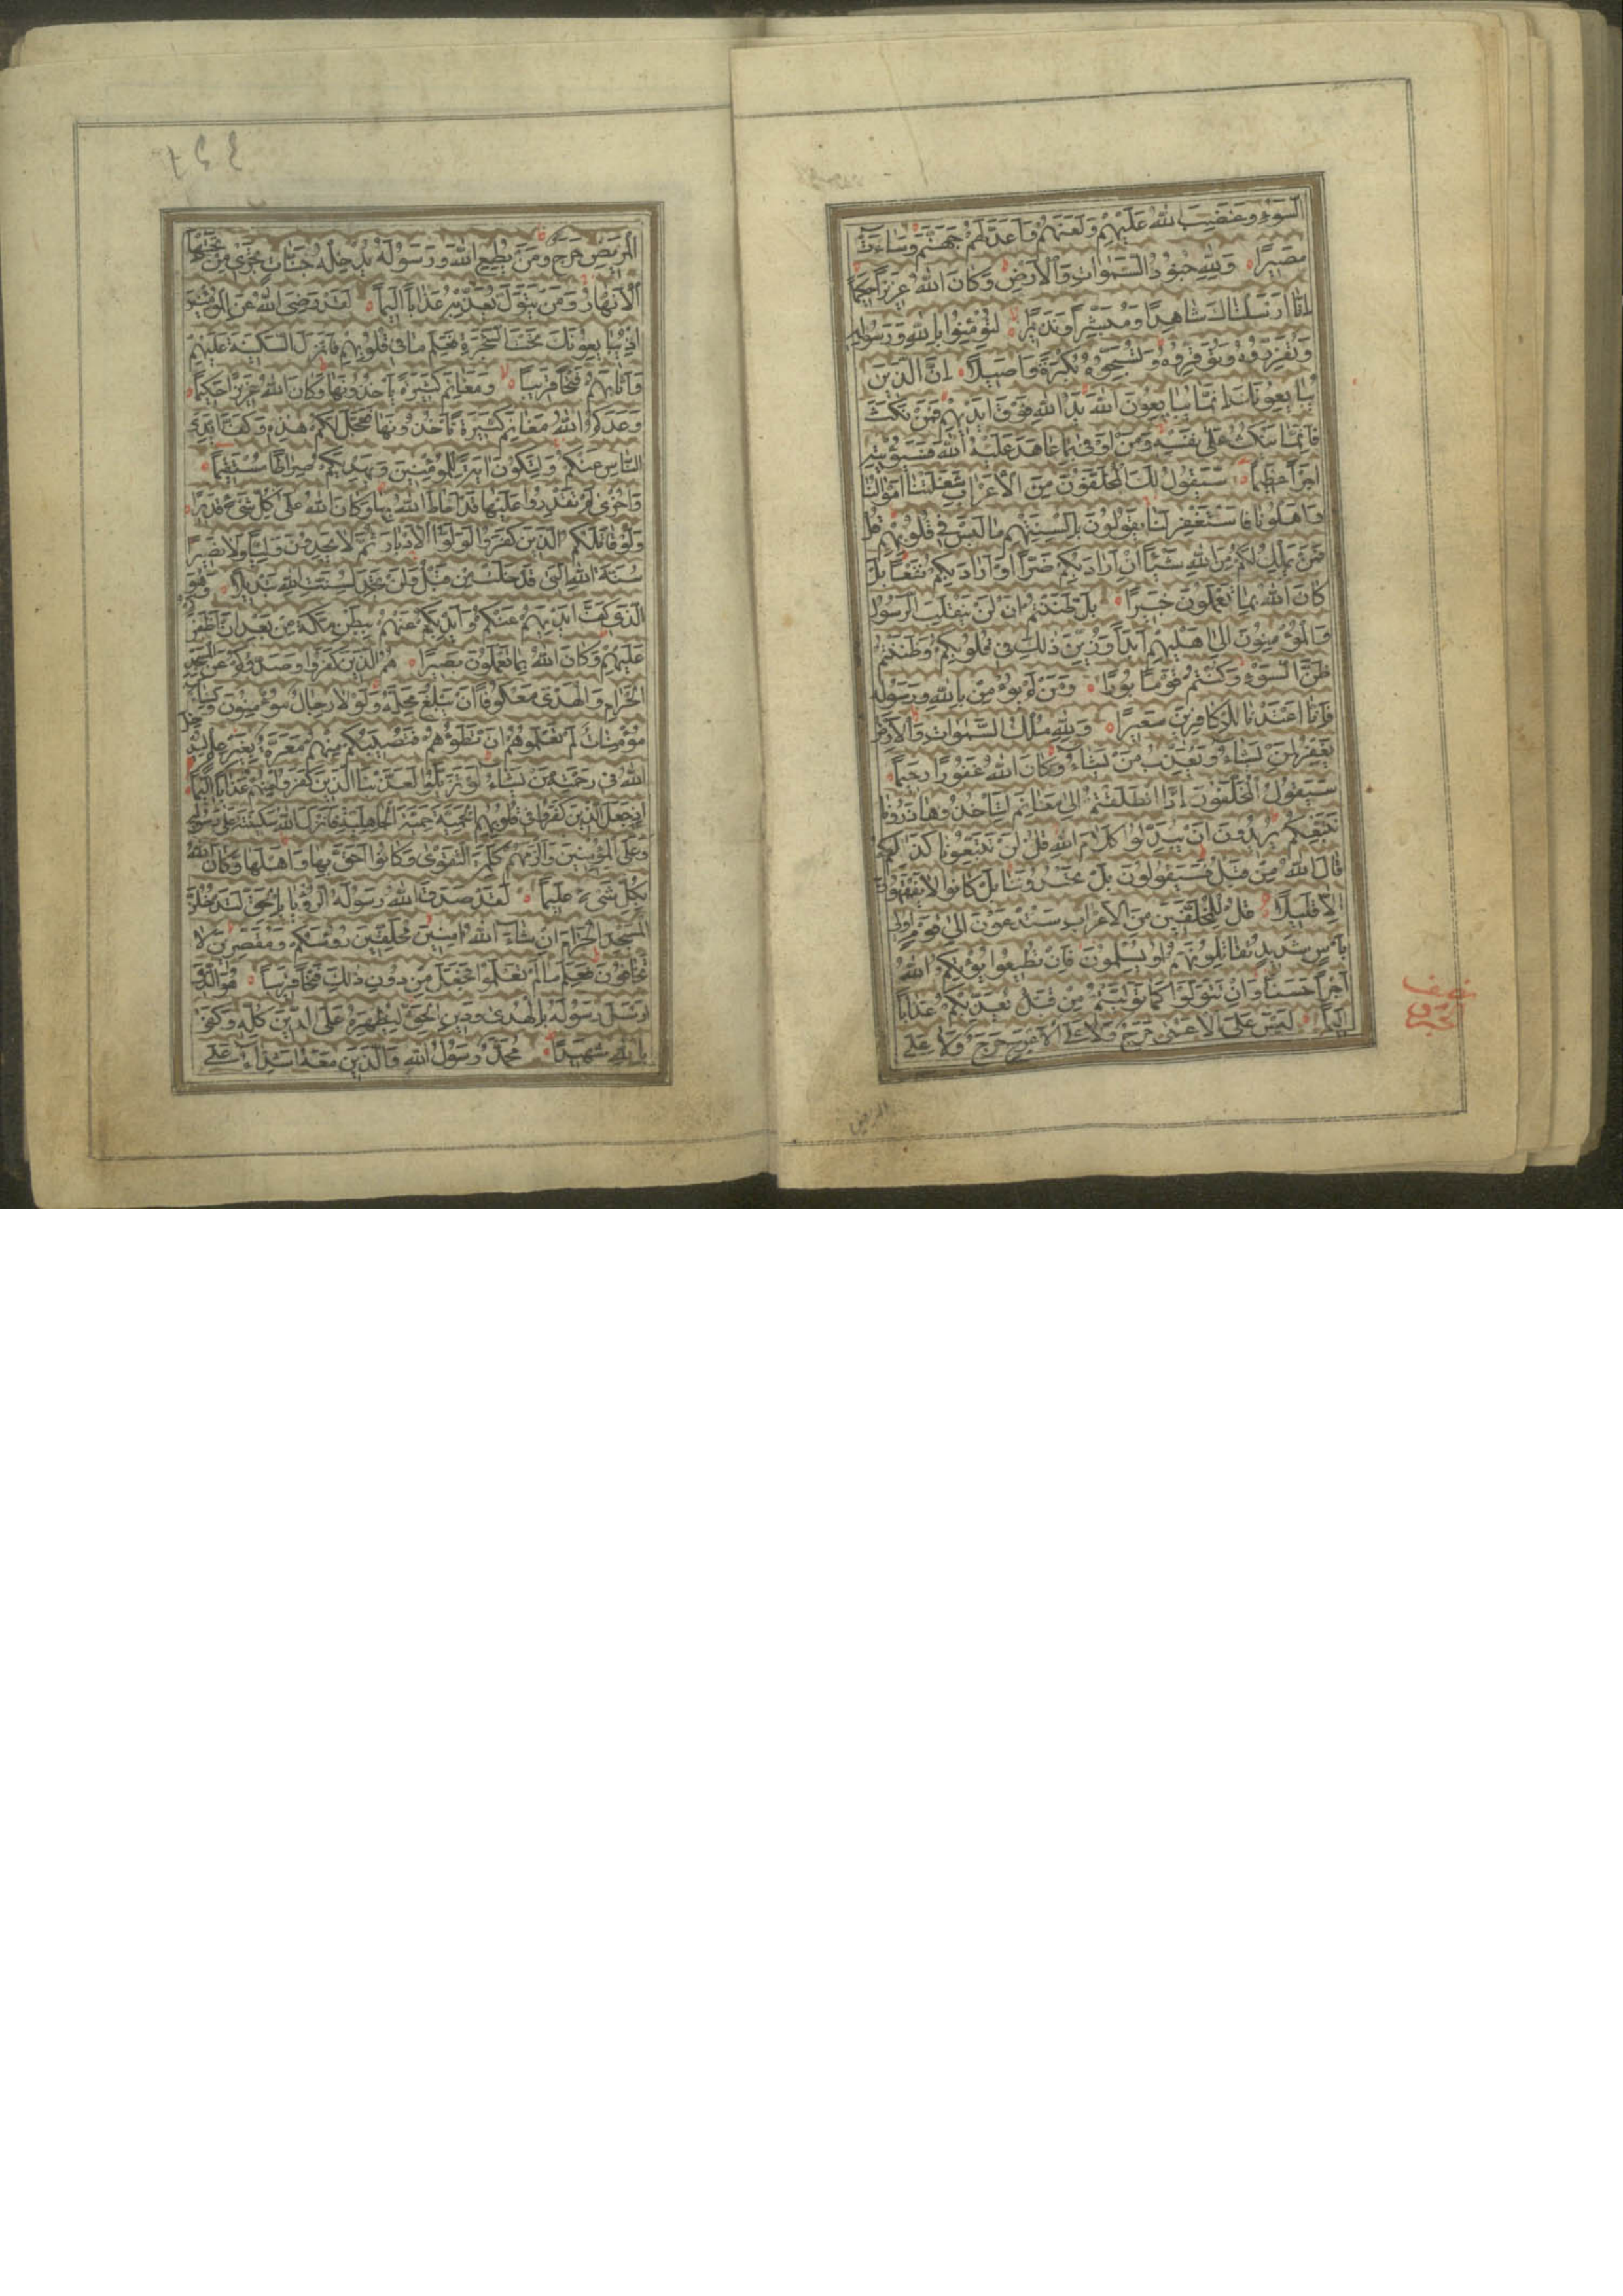 السَّوْءِ وَغَضِبَ اللهُ عَلَيْهِمْ وَلَعَنَهُمْ وَاَعَدَّ لَهُمْ جَهَنَّمَ وَسَاءَتْ
مَصِيرًا وَلِلّٰهِ جُنُودُ السَّمٰوَاتِ وَالْاَرْضِ وَكَانَ اللهُ عَزِيزًا حَكِيمًا
اِنَّا اَرْسَلْنَاكَ شَاهِدًا وَمُبَشِّرًا وَنَذِيرًا لِتُؤْمِنُوا بِاللهِ وَرَسُولِهِ
وَتُعَزِّرُوهُ وَتُوَقِّرُوهُ وَتُسَبِّحُوهُ بُكْرَةً وَاَصِيلًا اِنَّ الَّذِينَ
يُبَايِعُونَكَ اِنَّمَا يُبَايِعُونَ اللهَ يَدُ اللهِ فَوْقَ اَيْدِيهِمْ فَمَنْ نَكَثَ
فَاِنَّمَا يَنْكُثُ عَلٰى نَفْسِهِ وَمَنْ اَوْفٰى بِمَا عَاهَدَ عَلَيْهُ اللهَ فَسَيُؤْتِيهِ
اَجْرًا عَظِيمًا سَيَقُولُ لَكَ الْمُخَلَّفُونَ مِنَ الْاَعْرَابِ شَغَلَتْنَا اَمْوَالُنَا
وَاَهْلُونَا فَاسْتَغْفِرْ لَنَا يَقُولُونَ بِاَلْسِنَتِهِمْ مَا لَيْسَ فِي قُلُوبِهِمْ قُلْ
فَمَنْ يَمْلِكُ لَكُمْ مِنَ اللهِ شَيْئًا اِنْ اَرَادَ بِكُمْ ضَرًّا اَوْ اَرَادَ بِكُمْ نَفْعًا بَلْ
كَانَ اللهُ بِمَا تَعْمَلُونَ خَبِيرًا بَلْ ظَنَنْتُمْ اَنْ لَنْ يَنْقَلِبَ الرَّسُولُ
وَالْمُؤْمِنُونَ اِلٰى اَهْلِيهِمْ اَبَدًا وَزُيِّنَ ذٰلِكَ فِي قُلُوبِكُمْ وَظَنَنْتُمْ
ظَنَّ السَّوْءِ وَكُنْتُمْ قَوْمًا بُورًا وَمَنْ لَمْ يُؤْمِنْ بِاللهِ وَرَسُولِهِ
فَاِنَّا اَعْتَدْنَا لِلْكَافِرِينَ سَعِيرًا وَلِلّٰهِ مُلْكُ السَّمٰوَاتِ وَالْاَرْضِ
يَغْفِرُ لِمَنْ يَشَاءُ وَيُعَذِّبُ مَنْ يَشَاءُ وَكَانَ اللهُ غَفُورًا رَحِيمًا
سَيَقُولُ الْمُخَلَّفُونَ اِذَا انْطَلَقْتُمْ اِلٰى مَغَانِمَ لِتَأْخُذُوهَا ذَرُونَا
نَتَّبِعْكُمْ يُرِيدُونَ اَنْ يُبَدِّلُوا كَلَامَ اللهِ قُلْ لَنْ تَتَّبِعُونَا كَذٰلِكُمْ
قَالَ اللهُ مِنْ قَبْلُ فَسَيَقُولُونَ بَلْ تَحْسُدُونَنَا بَلْ كَانُوا لَا يَفْقَهُونَ
اِلَّا قَلِيلًا قُلْ لِلْمُخَلَّفِينَ مِنَ الْاَعْرَابِ سَتُدْعَوْنَ اِلٰى قَوْمٍ اُولِي
بَأْسٍ شَدِيدٍ تُقَاتِلُونَهُمْ اَوْ يُسْلِمُونَ فَاِنْ تُطِيعُوا يُؤْتِكُمُ اللهُ
اَجْرًا حَسَنًا وَاِنْ تَتَوَلَّوْا كَمَا تَوَلَّيْتُمْ مِنْ قَبْلُ يُعَذِّبْكُمْ عَذَابًا
اَلِيمًا لَيْسَ عَلَى الْاَعْمٰى حَرَجٌ وَلَا عَلَى الْاَعْرَجِ حَرَجٌ وَلَا عَلَى
المريض
الْمَرِيضِ حَرَجٌ وَمَنْ يُطِعِ اللهَ وَرَسُولَهُ يُدْخِلْهُ جَنَّاتٍ تَجْرِي مِنْ تَحْتِهَا
الْاَنْهَارُ وَمَنْ يَتَوَلَّ يُعَذِّبْهُ عَذَابًا اَلِيمًا لَقَدْ رَضِيَ اللهُ عَنِ الْمُؤْمِنِينَ
اِذْ يُبَايِعُونَكَ تَحْتَ الشَّجَرَةِ فَعَلِمَ مَا فِي قُلُوبِهِمْ فَاَنْزَلَ السَّكِينَةَ عَلَيْهِمْ
وَاَثَابَهُمْ فَتْحًا قَرِيبًا وَمَغَانِمَ كَثِيرَةً يَأْخُذُونَهَا وَكَانَ اللهُ عَزِيزًا حَكِيمًا
وَعَدَكُمُ اللهُ مَغَانِمَ كَثِيرَةً تَأْخُذُونَهَا فَعَجَّلَ لَكُمْ هٰذِهِ وَكَفَّ اَيْدِيَ
النَّاسِ عَنْكُمْ وَلِتَكُونَ اٰيَةً لِلْمُؤْمِنِينَ وَيَهْدِيَكُمْ صِرَاطًا مُسْتَقِيمًا
وَاُخْرٰى لَمْ تَقْدِرُوا عَلَيْهَا قَدْ اَحَاطَ اللهُ بِهَا وَكَانَ اللهُ عَلٰى كُلِّ شَيْءٍ قَدِيرًا
وَلَوْ قَاتَلَكُمُ الَّذِينَ كَفَرُوا لَوَلَّوُا الْاَدْبَارَ ثُمَّ لَا يَجِدُونَ وَلِيًّا وَلَا نَصِيرًا
سُنَّةَ اللهِ الَّتِي قَدْ خَلَتْ مِنْ قَبْلُ وَلَنْ تَجِدَ لِسُنَّتِ اللهِ تَبْدِيلًا وَهُوَ
الَّذِي كَفَّ اَيْدِيَهُمْ عَنْكُمْ وَاَيْدِيَكُمْ عَنْهُمْ بِبَطْنِ مَكَّةَ مِنْ بَعْدِ اَنْ اَظْفَرَكُمْ
عَلَيْهِمْ وَكَانَ اللهُ بِمَا تَعْمَلُونَ بَصِيرًا هُمُ الَّذِينَ كَفَرُوا وَصَدُّوكُمْ عَنِ الْمَسْجِدِ
الْحَرَامِ وَالْهَدْيَ مَعْكُوفًا اَنْ يَبْلُغَ مَحِلَّهُ وَلَوْلَا رِجَالٌ مُؤْمِنُونَ وَنِسَاءٌ
مُؤْمِنَاتٌ لَمْ تَعْلَمُوهُمْ اَنْ تَطَؤُهُمْ فَتُصِيبَكُمْ مِنْهُمْ مَعَرَّةٌ بِغَيْرِ عِلْمٍ لِيُدْخِلَ
اللهُ فِي رَحْمَتِهِ مَنْ يَشَاءُ لَوْ تَزَيَّلُوا لَعَذَّبْنَا الَّذِينَ كَفَرُوا مِنْهُمْ عَذَابًا اَلِيمًا
اِذْ جَعَلَ الَّذِينَ كَفَرُوا فِي قُلُوبِهِمُ الْحَمِيَّةَ حَمِيَّةَ الْجَاهِلِيَّةِ فَاَنْزَلَ اللهُ سَكِينَتَهُ عَلٰى رَسُولِهِ
وَعَلَى الْمُؤْمِنِينَ وَاَلْزَمَهُمْ كَلِمَةَ التَّقْوٰى وَكَانُوا اَحَقَّ بِهَا وَاَهْلَهَا وَكَانَ اللهُ
بِكُلِّ شَيْءٍ عَلِيمًا لَقَدْ صَدَقَ اللهُ رَسُولَهُ الرُّؤْيَا بِالْحَقِّ لَتَدْخُلُنَّ
الْمَسْجِدَ الْحَرَامَ اِنْ شَاءَ اللهُ اٰمِنِينَ مُحَلِّقِينَ رُؤُسَكُمْ وَمُقَصِّرِينَ لَا
تَخَافُونَ فَعَلِمَ مَا لَمْ تَعْلَمُوا فَجَعَلَ مِنْ دُونِ ذٰلِكَ فَتْحًا قَرِيبًا هُوَ الَّذِي
اَرْسَلَ رَسُولَهُ بِالْهُدٰى وَدِينِ الْحَقِّ لِيُظْهِرَهُ عَلَى الدِّينِ كُلِّهِ وَكَفٰى
بِاللهِ شَهِيدًا مُحَمَّدٌ رَسُولُ اللهِ وَالَّذِينَ مَعَهُ اَشِدَّاءُ عَلَى